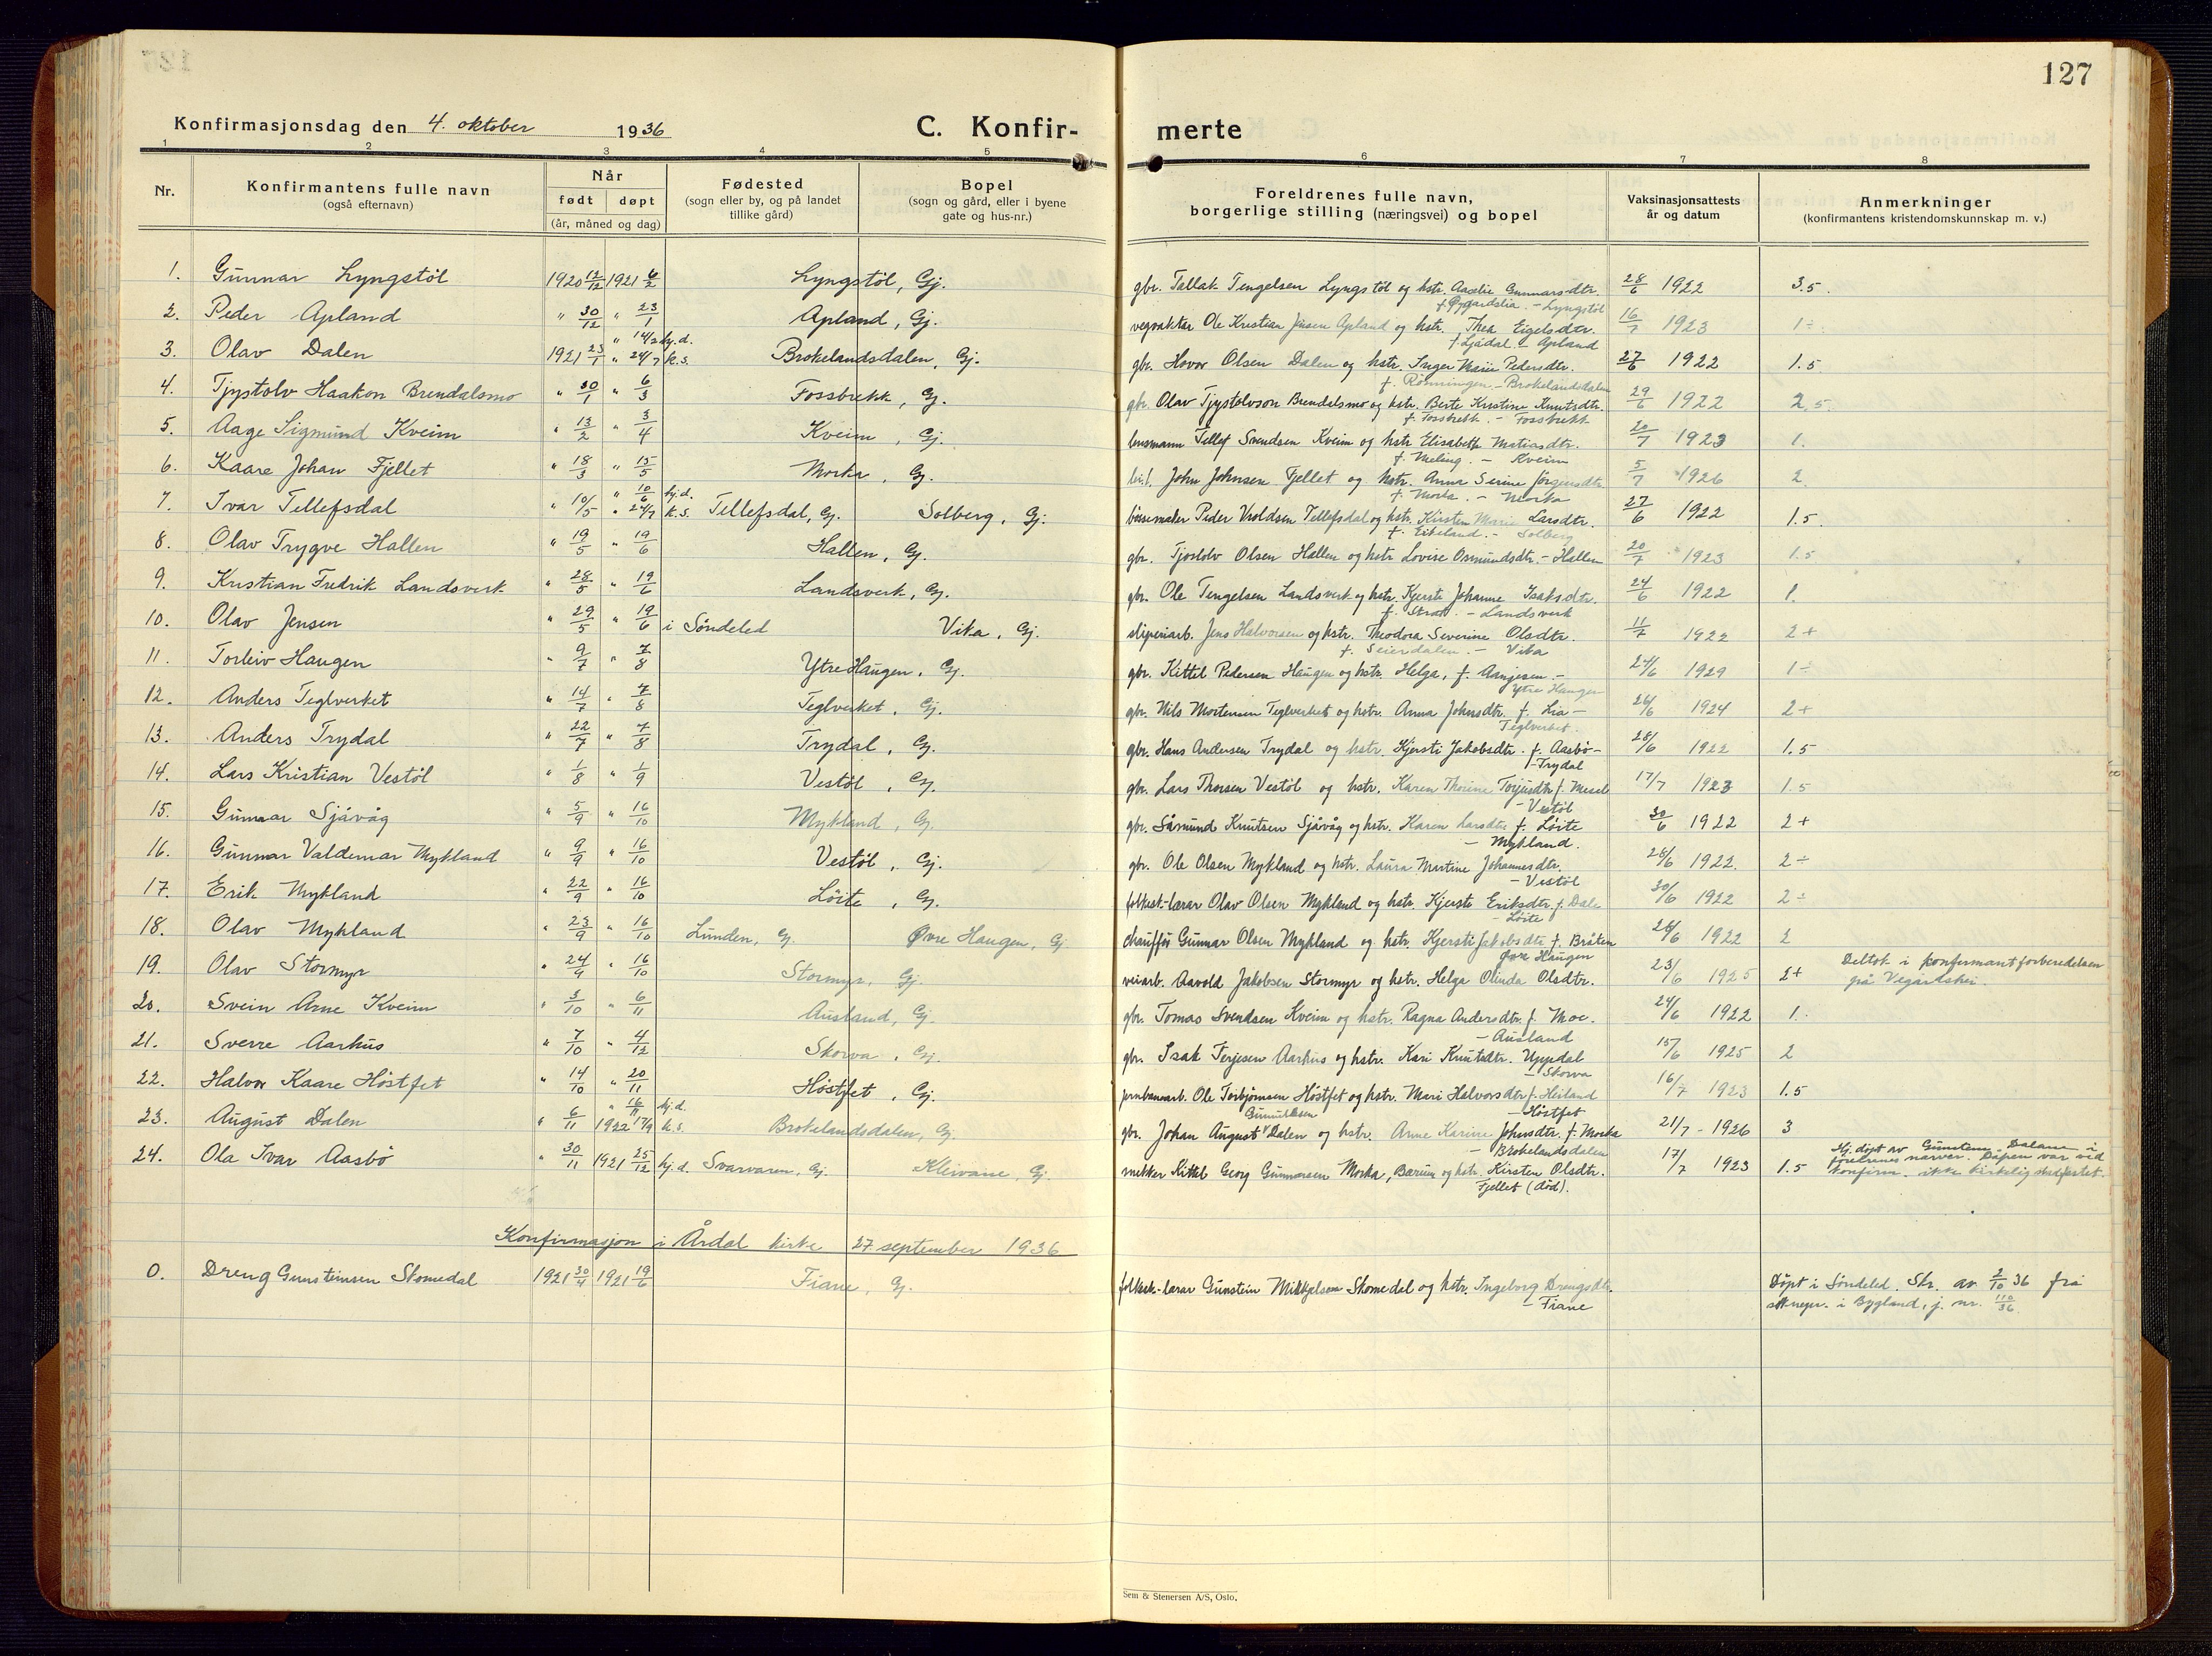 127
Konfirmasjonsdag den 4. oktober 1936
C. Konfir-
merte
1 2 3 4 5 6 7 8
Nr.
Konfirmantens fulle navn
(også efternavn)
Når
født døpt
(år, måned og dag)
Fødested
(sogn eller by, og på landet
tillike gård)
Bopel
(sogn og gård, eller i byene
gate og hus-nr.)
Foreldrenes fulle navn,
borgerlige stilling (næringsvei) og bopel
Vaksinasjonsattests
år og datum
Anmerkninger
(konfirmantens kristendomskunnskap m. v.)
1. Gunnar Lyngstöl 1920 12/12 1921 6/2 Lyngstöl, Gj. gbr. Tallak Tengelsen Lyngstöl og hstr. Aaselie Gunnarsdtr. 28/6 1922 3.5.
- Lyngstöl
2. Peder Apland " 30/12 " 23/1 Apland, Gj. vegvaktar Ole Kristian Jensen Apland og hstr. Thea Eigelsdtr. 16/7 1923 1÷
f. Ljådal - Apland
" 14/2 hj.d.
3. Olav Dalen 1921 23/1 " 24/7 k.s. Brokelandsdalen, Gj. gbr. Hovor Olsen Dalen og hstr. Inger Marie Pedersdtr. 27/6 1922 1.5
f. Rönningen - Brokelandsdalen
4. Tjystolv Haakon Brendalsmo " 30/1 " 6/3 Fossbrekk, Gj. gbr. Olav Tjystolvson Brendalsmo og hstr. Berte Kristine Knutsdtr. 29/6 1922 2.5
f. Fossbrekk - Fossbrekk
5. Aage Sigmund Kveim " 13/2 " 3/4 Kveim, Gj. lensmann Tellef Svendsen Kveim og hstr Elisabeth Matiasdtr. 20/7 1923 1.
f. Meling. - Kveim
6. Kaare Johan Fjellet " 18/3 " 15/5 Morka, Gj. John Johnsen Fjellet og hstr. Anna Serine Jörgensdtr. 5/7 1926 2
f. Morka. - Morka
" 10/6 hj.d.
7. Ivar Tellefsdal " 10/5 " 24/7 k.s. Tellefsdal, Gj. Solberg, Gj. bössemaker Peder Vroldsen Tellefsdal og hstr. Kirsten Marie Larsdtr. 27/6 1922 1.5.
f. Eikeland. - Solberg
8. Olav Trygve Hallen " 19/5 " 19/6 Hallen, Gj. gbr. Tjostolv Olsen Hallen og hstr Lovise Osmundsdtr. - Hallen 20/7 1923 1.5
9. Kristian Fredrik Landsverk " 28/5 " 19/6 Landsverk, Gj. gbr. Ole Tengelsen Landsverk og hstr. Kjersti Johanne Isaksdtr. 24/6 1922 1.
- Landsverk
10. Olav Jensen " 29/5 " 19/6 i Söndeled Vika, Gj. sliperiarb. Jens Halvorsen og hstr. Theodora Severine Olsdtr. 11/7 1922 2+
f. Seierdalen. - Vika
11. Torleiv Haugen " 9/7 " 7/8 Ytre Haugen, Gj. gbr. Kittel Pedersen Haugen og hstr. Helga, f. Aanjesen. - 24/6 1929 1÷
Ytre Haugen
12. Anders Teglverket " 14/7 " 7/8 Teglverket, Gj. gbr. Nils Mortensen Teglverket og hstr. Anna Johnsdtr. f. Lia - 26/6 1924 2+
Teglverket.
13. Anders Trydal " 22/7 " 7/8 Trydal, Gj. gbr. Hans Andersen Trydal og hstr. Kjersti Jakobsdtr. f. Aasbö - 28/6 1922 1.5
- Trydal
14. Lars Kristian Vestöl " 1/8 " 1/9 Vestöl, Gj. gbr. Lars Thorsen Vestöl og hstr. Karen Thorine Torjusdtr f. Mesel 17/7 1923 1.5
- Vestöl
15. Gunnar Sjåvåg " 5/9 " 16/10 Mykland, Gj. gbr. Såmund Knutsen Sjåvåg og hstr. Karen Larsdtr f. Löite 30/6 1922 2+
- Mykland.
16. Gunnar Valdemar Mykland " 9/9 " 16/10 Vestöl, Gj. gbr. Ole Olsen Mykland og hstr. Laura Martine Johannesdtr. 28/6 1922. 2÷
- Vestöl
17. Erik Mykland " 22/9 " 16/10 Löite, Gj. folkesk.-lærar Olav Olsen Mykland og hstr. Kjersti Eriksdtr. f. Dale 30/6 1922 2÷
- Löite
18. Olav Mykland " 23/9 " 16/10 Lunden, Gj. Øvre Haugen, Gj. chauffør Gunnar Olsen Mykland og hstr. Kjersti Jakobsdtr f. Bråten 28/6 1922 2
Øvre Haugen
19. Olav Stormyr " 24/9 " 16/10 Stormyr, Gj. veiarb. Aavold Jakobsen Stormyr og hstr. Helga Olinda Olsdtr. 23/6 1925 2+ Deltok i konfirmantforberedelsen
på Vegårdshei.
20. Svein Arne Kveim " 3/10 " 6/11 Ausland, Gj. gbr. Tomas Svendsen Kveim og hstr. Ragna Andersdtr. f. Moe. 24/6 1922 1.
- Ausland
21. Sverre Aarhus " 7/10 " 4/12 Skorva, Gj. gbr. Isak Terjesen Aarhus og hstr. Kari Knutsdtr. Uppdal 15/6 1925 2
- Skorva
22. Halvor Kaare Höstfet " 14/10 " 20/11 Höstfet, Gj. jernbanearb. Ole Torbjörnsen Höstfet og hstr. Mari Halvorsdtr f. Heiland 16/7 1923 1.5
- Höstfet
" 16/11 hj.d.
23. August Dalen " 6/11 1922 17/9 k.s. Brokelandsdalen, Gj. gbr. Johan August Dalen og hstr. Anne Karine Johnsdtr. f. Morka 21/7 - 1926 3
- Brokelandsdalen
24. Ola Ivar Aasbö " 30/11 1921 25/12 hj.d. Svarvaren, Gj. Kleivane, Gj. mekker Kittel Georg Gunnarsen Morka, Bærum og hstr. Kirsten Olsdtr. 17/7 1923 1.5 Hj. døpt av Gunstein Dalane i
Fjellet (død).
foreldrenes nærver. Dåpen var ved
konfirm. ikke kirkelig stadfestet.
Konfirmasjon i Årdal kirke 27. september 1936
0. Dreng Gunsteinsen Skomedal 1921 30/4 1921 19/6 Fiane, Gj. folkesk.-lærar Gunstein Mikkjelsen Skomedal og hstr. Ingeborg Drengsdtr. Døpt i Söndeled. Skr. av 2/10 36 frå
- Fiane
sokneper. i Bygland, j. nr. 110/36.
Sem & Stenersen A/S, Oslo.